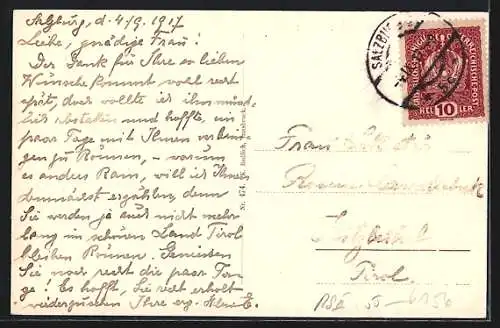 Salzburg, d. 4/9. 1917
Liebe, gnädige Frau!
Der Dank für Ihre so lieben
Wünsche kommt wohl recht
spät, doch wollte ich ihn münd-
lich abstatten und hoffte, ein
paar Tage mit Ihnen verbrin-
gen zu können, – warum
es anders kam, will ich Ihnen
demnächst erzählen, denn
Sie werden ja auch nicht mehr
lang im schönen Land Tirol
bleiben können. Geniessen
Sie noch recht die paar Ta-
ge! Es hofft, Sie recht erholt
wiederzusehen Ihre erg.
Nr. 474. Redlich, Innsbruck.
SALZBURG
10
HELLER
Frau
Tirol.